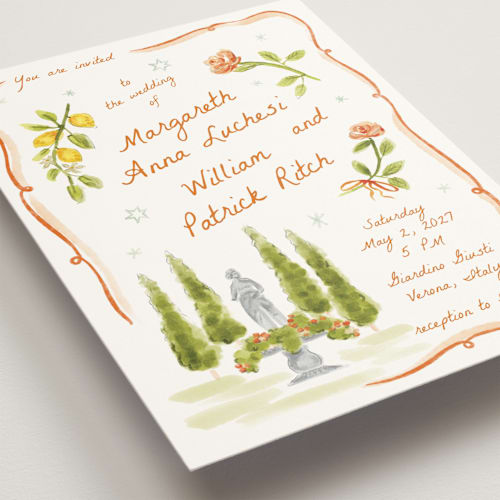 You are invited
to
the wedding
of
Margareth
Anna Luchesi
and
William
Patrick Ritch
Saturday
May 2, 2027
5 PM
Giardino Giusti
Verona, Italy
reception to